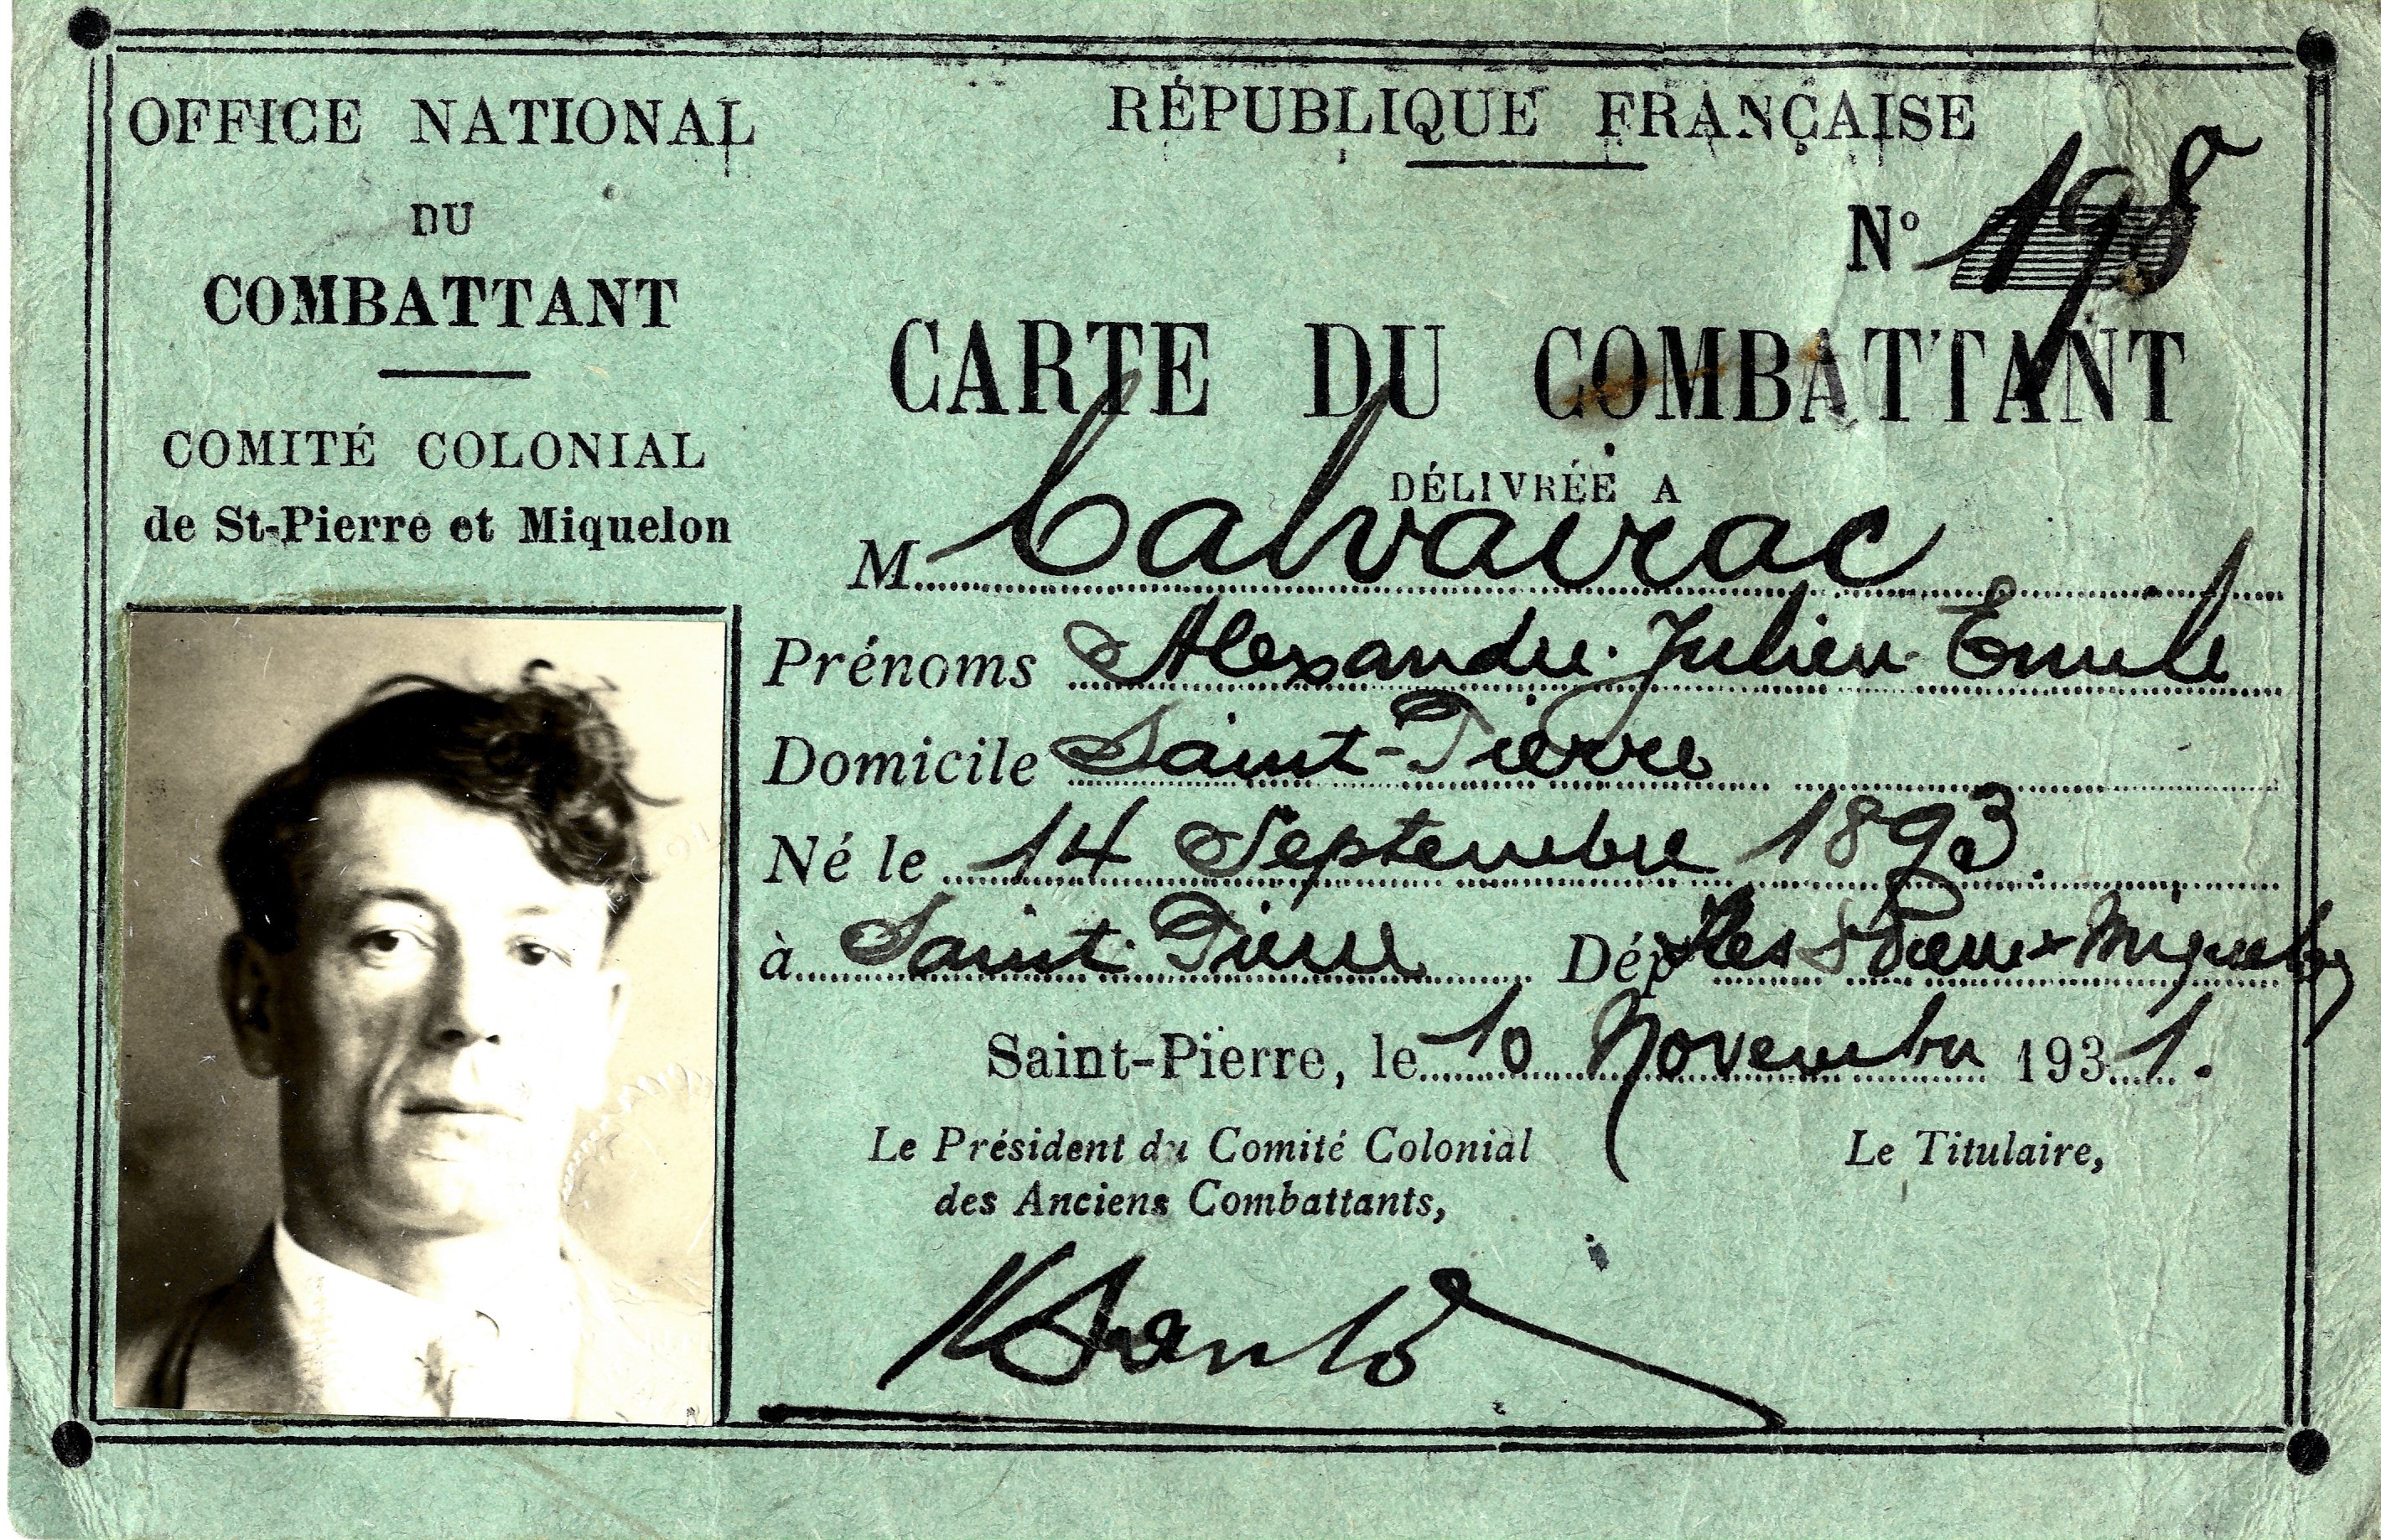 OFFICE NATIONAL
DU
COMBATTANT
COMITÉ COLONIAL
de St-Pierre et Miquelon
RÉPUBLIQUE FRANÇAISE
N° 198
CARTE DU COMBATTANT
DÉLIVRÉE A
M Calvairac
Prénoms Alexandre Julien Emile
Domicile Saint-Pierre
Né le 14 Septembre 1893.
à Saint Pierre Dép Iles St Pierre & Miquelon
Saint-Pierre, le 10 Novembre 1931.
Le Président du Comité Colonial
des Anciens Combattants,
Le Titulaire,